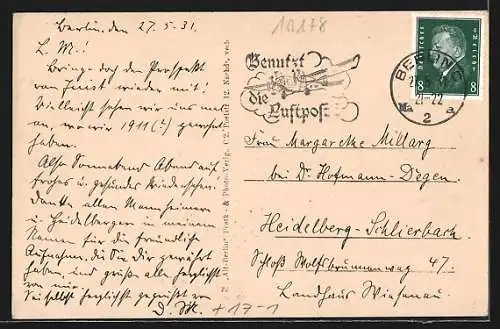 Berlin, den 27.5.31.
L. M.!
Bringe doch den Prospekt
von Faist wieder mit!
Vielleicht sehen wir uns mal
an, wo wir 1911 (?) gewohnt
haben.
Also Sonnabend Abend auf
frohes u. gesundes Wiedersehen.
Danke allen Mannheimern
u. Heidelbergern in meinem
Namen für die freundliche
Aufnahme, die sie Dir gewährt
haben, und grüße alle herzlichst
von mir.
Du selbst herzlichst gegrüßt von
D. M. + 17-1
10178
Benutzt
die
Luftpost
BERLIN
21-22
2 a
Deutsches Reich
8 8
Frau Margarethe Millarg
bei Dr. Hofmann-Degen.
Heidelberg-Schlierbach
Schloß Wolfsbrunnenweg 47.
Landhaus Wiesenau
"Alt-Berlin" Postk.- & Photo-Verlg. C2, Poststr. 12. Nachdr. verb.